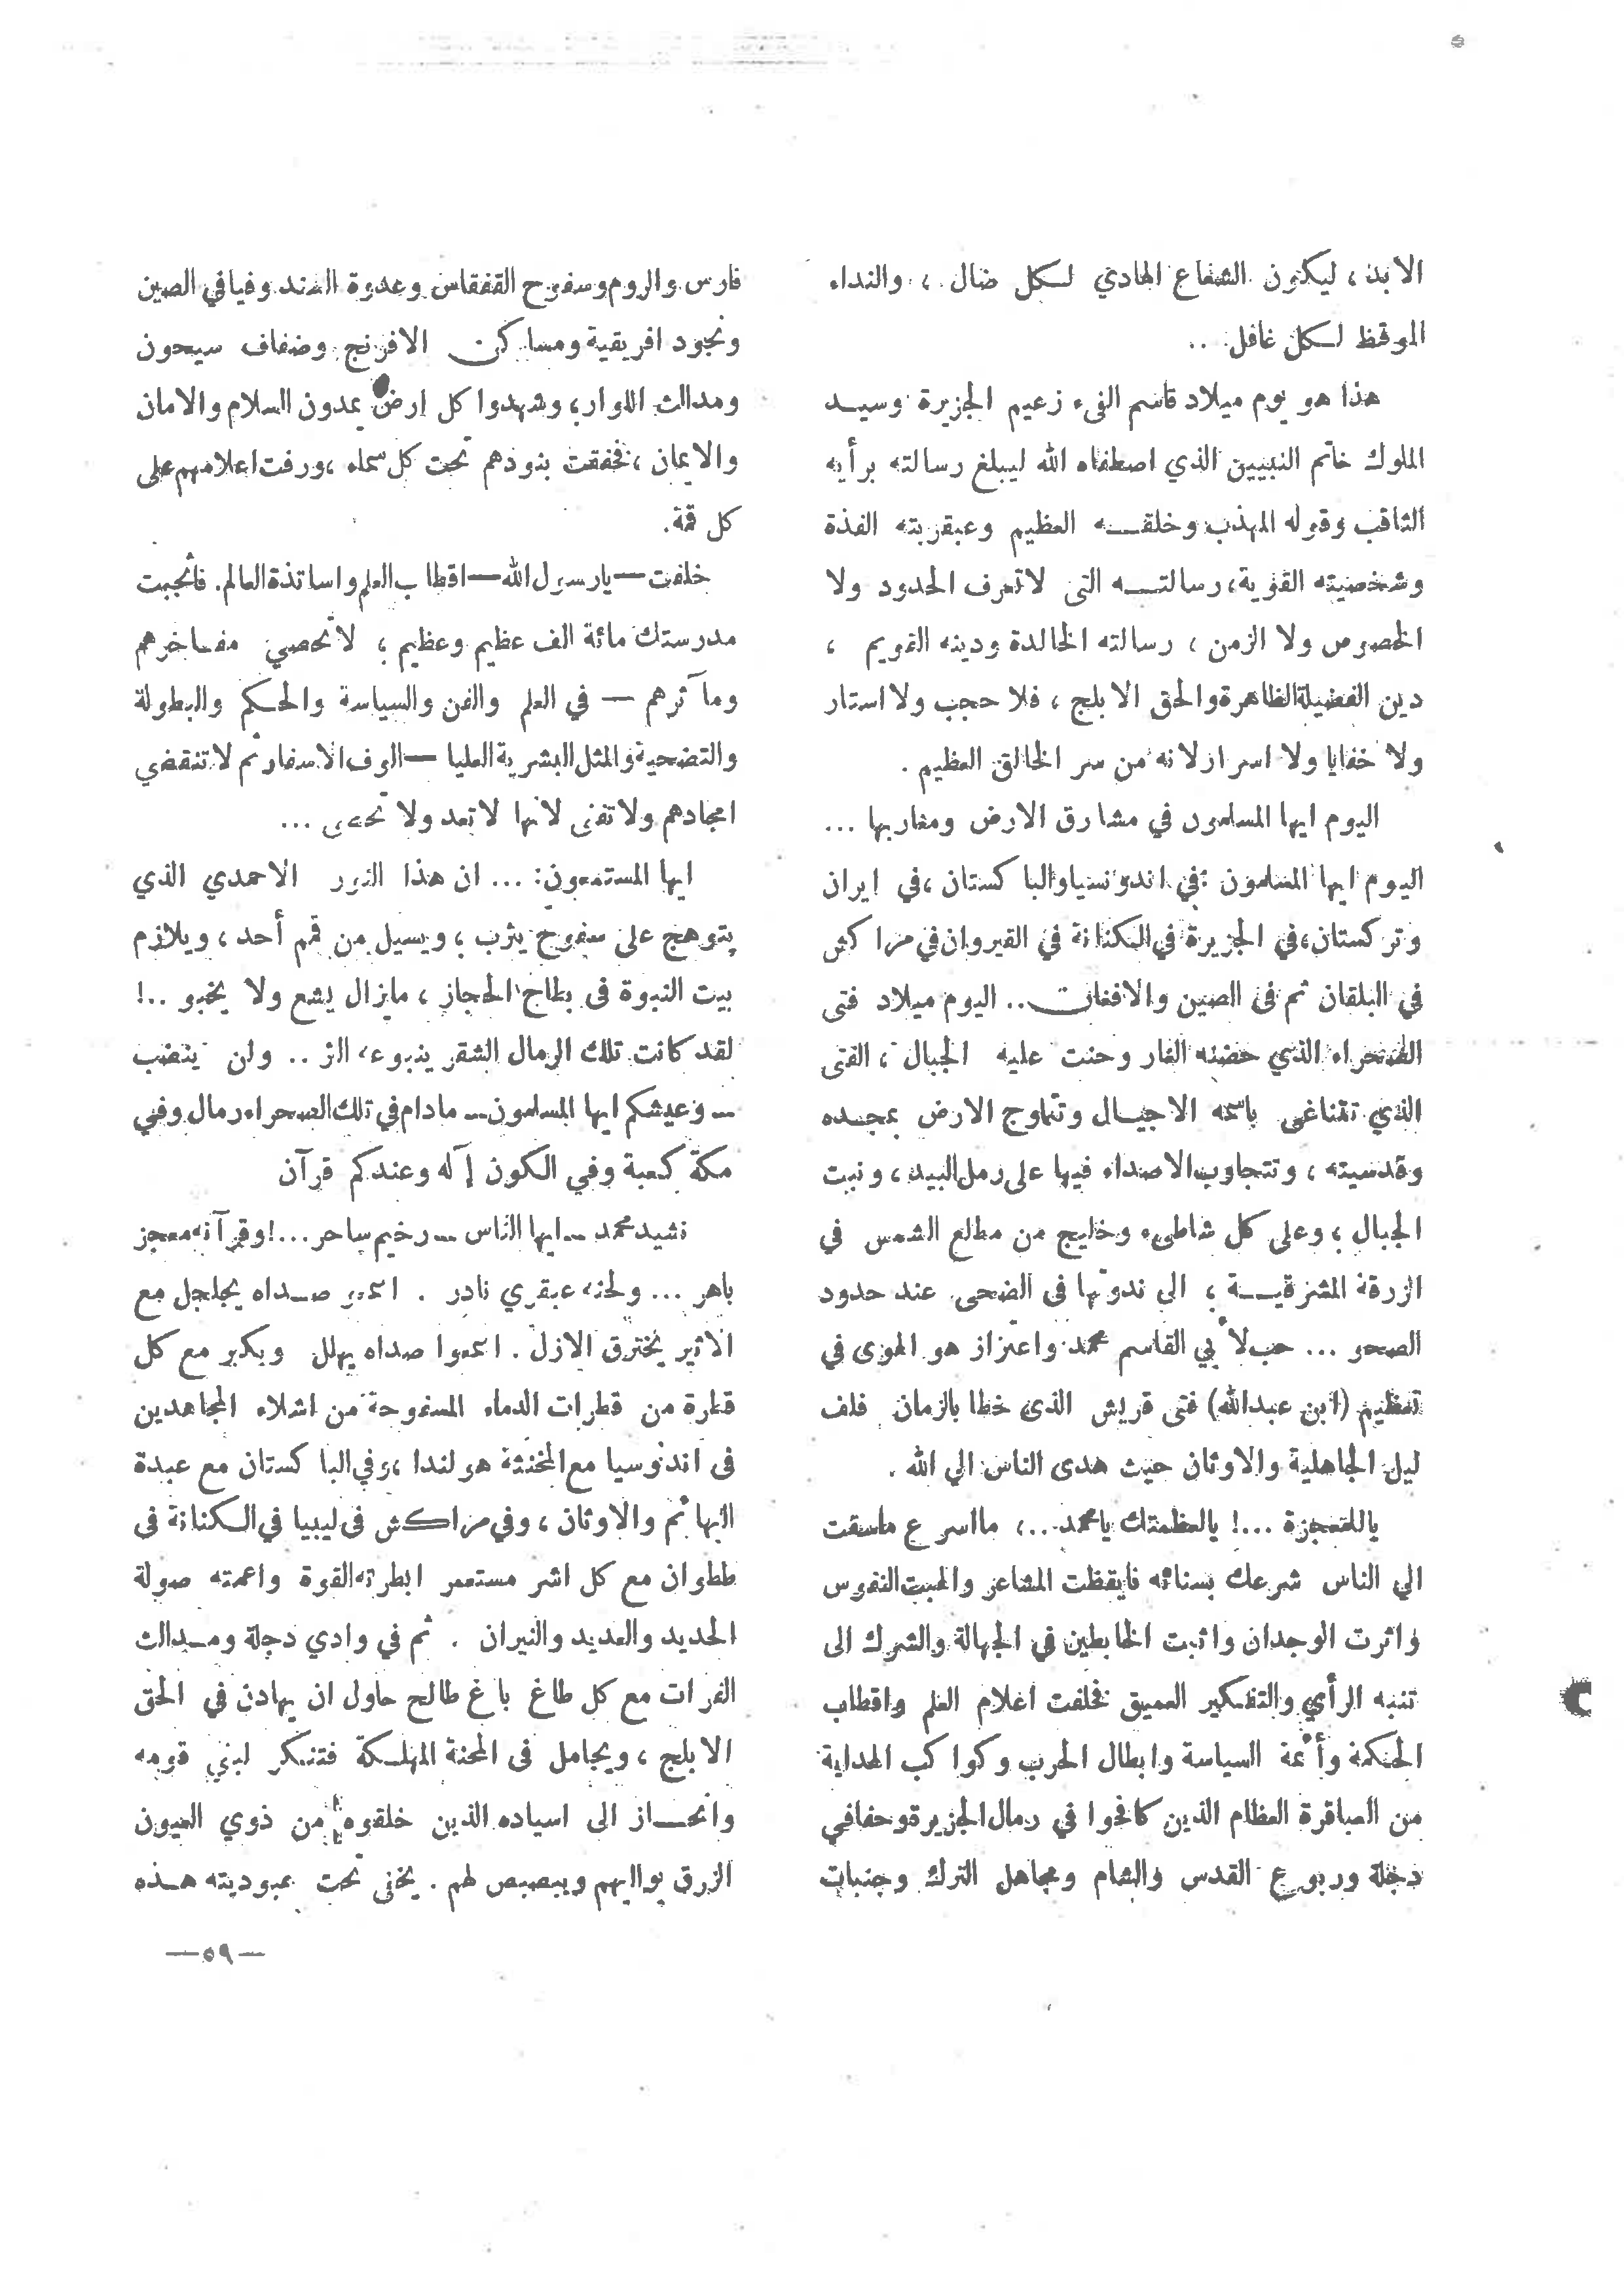 الابد ، ليكون الشعاع الهادي لكل ضال ، والنداء
الموقظ لكل غافل ..
هذا هو يوم ميلاد قاسم الفيء زعيم الجزيرة وسيد
الملوك خاتم النبيين الذي اصطفاه الله ليبلغ رسالته برأيه
الثاقب وقوله المهذب وخلقه العظيم وعبقريته الفذة
وشخصيته القوية ، رسالته التى لا تعرف الحدود ولا
الخصوص ولا الزمن ، رسالته الخالدة ودينه القويم ،
دين الفضيلة الظاهرة والحق الابلج ، فلا حجب ولا استار
ولا خفايا ولا اسرار لانه من سر الخالق العظيم .
اليوم ايها المسلمون في مشارق الارض ومغاربها ...
اليوم ايها المسلمون في اندونسيا والباكستان ، في ايران
وتركستان ، في الجزيرة في الكنانة في القيروان في مراكش
في البلقان ثم فى الصين والافغان .. اليوم ميلاد فتى
الصحراء الذي حضنه الغار وحنت عليه الجبال ، الفتى
الذي تتناغى باسمه الاجيال وتتماوج الارض بمجده
وقدسيته ، وتتجاوب الاصداء فيها على رمل البيد ، ونبت
الجبال ، وعلى كل شاطىء وخليج من مطالع الشمس في
الزرقة المشرقية ، الى ندوتها فى الضحى عند حدود
الصحو ... حب لأبي القاسم محمد واعتزاز هو الهوى في
تعظيم (ابن عبدالله) فتى قريش الذى خطا بالزمان فلف
ليل الجاهلية والاوثان حيث هدى الناس الي الله .
ياللمعجزة ...! يالعظمتك يا محمد ...، ما اسرع ماسقت
الي الناس شرعك بسنائه فايقظت المشاعر والهبت النفوس
واثرت الوجدان واثبت الخابطين في الجهالة والشرك الى
تنبه الرأي والتفكير العميق فخلفت اعلام العلم واقطاب
الحكمة وأئمة السياسة وابطال الحرب وكواكب الهداية
من العباقرة العظام الذين كافحوا في رمال الجزيرة وحفافي
دجلة وربوع القدس والشام ومجاهل الترك وجنبات
فارس والروم وسفوح القفقاس وعدوة السند وفيافي الصين
ونجود افريقية ومساكن الافرنج وضفاف سيحون
ومدالث اللوار ، وشهدوا كل ارض يمدون السلام والامان
والايمان ، فخفقت بنودهم تحت كل سماء ، ورفت اعلامهم على
كل قمة .
خلفت — يارسول الله — اقطاب العلم واساتذة العالم . فانجبت
مدرستك مائة الف عظيم وعظيم ، لا تحصي مفاخرهم
ومآثرهم — في العلم والفن والسياسة والحكم والبطولة
والتضحية والمثل البشرية العليا — الوف الاسفار ثم لا تنقضي
امجادهم ولا تفنى لانها لا تعد ولا تحصى ...
ايها المستمعون : ... ان هذا النور الاحمدي الذي
يتوهج على سفوح يثرب ، ويسيل من قمم أحد ، ويلازم
بيت النبوة فى بطاح الحجاز ، مايزال يشع ولا يخبو ..!
لقد كانت تلك الرمال الشقر ينبوعه الثر .. ولن ينضب
— وعيشكم ايها المسلمون — مادام في تلك الصحراء رمال وفي
مكة كعبة وفي الكون إله وعندكم قرآن
نشيد محمد — ايها الناس — رخيم ساحر ...! وقرآنه معجز
باهر ... ولحنه عبقري نادر . اسمعوا صداه يجلجل مع
الاثير يخترق الازل . اسمعوا صداه يهلل ويكبر مع كل
قطرة من قطرات الدماء المسفوحة من اشلاء المجاهدين
فى اندنوسيا مع المخنثة هولندا ، وفي الباكستان مع عبدة
البهائم والاوثان ، وفي مراكش فى ليبيا في الكنانة فى
ططوان مع كل اشر مستعمر ابطرته القوة واعمته صولة
الحديد والعديد والنيران . ثم في وادي دجلة ومدالث
الفرات مع كل طاغ باغ طالح حاول ان يهادن في الحق
الابلج ، ويجامل فى المحنة المهلكة فتنكر لبني قومه
وانحاز الى اسياده الذين خلقوه من ذوي العيون
الزرق يواليهم ويبصبص لهم . يخفى تحت عبوديته هذه
— ٥٩ —